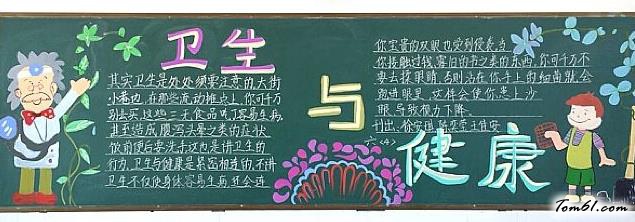 卫生
与
健康
其实卫生是处处须要注意的,大街
小巷边,在那些流动摊点上,你可千万
别去买,这些三无食品,吃了容易生病,
甚至造成腹泻头晕之类的症状,
饭前便后要洗手这也是讲卫生的
行为,卫生与健康是紧密相连的,不讲
卫生不仅使身体容易生病,社会还
你宝贵的双眼也受到侵袭,当
你接触过钱、客旧的书之类的东西,你可千万不
要去揉眼睛,否则沾在你手上的细菌就会
跑进眼里,这样会使你患上沙
眼,导致视力下降。
六<4>
刊出:
Tom61.com